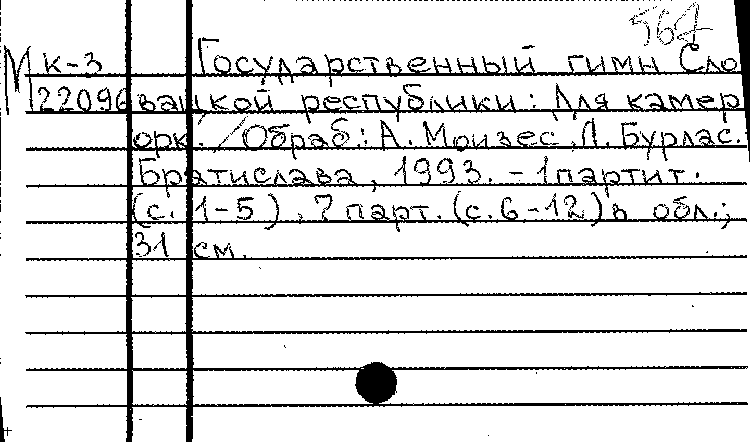 564
М к-3 Государственный гимн Сло
22096 вацкой республики: Для камер
орк. / Обраб.: А. Мойзес, Л. Бурлас.
Братислава, 1993. - 1 партит.
(с. 1-5), 7 парт. (с. 6-12) в обл.;
31 см.